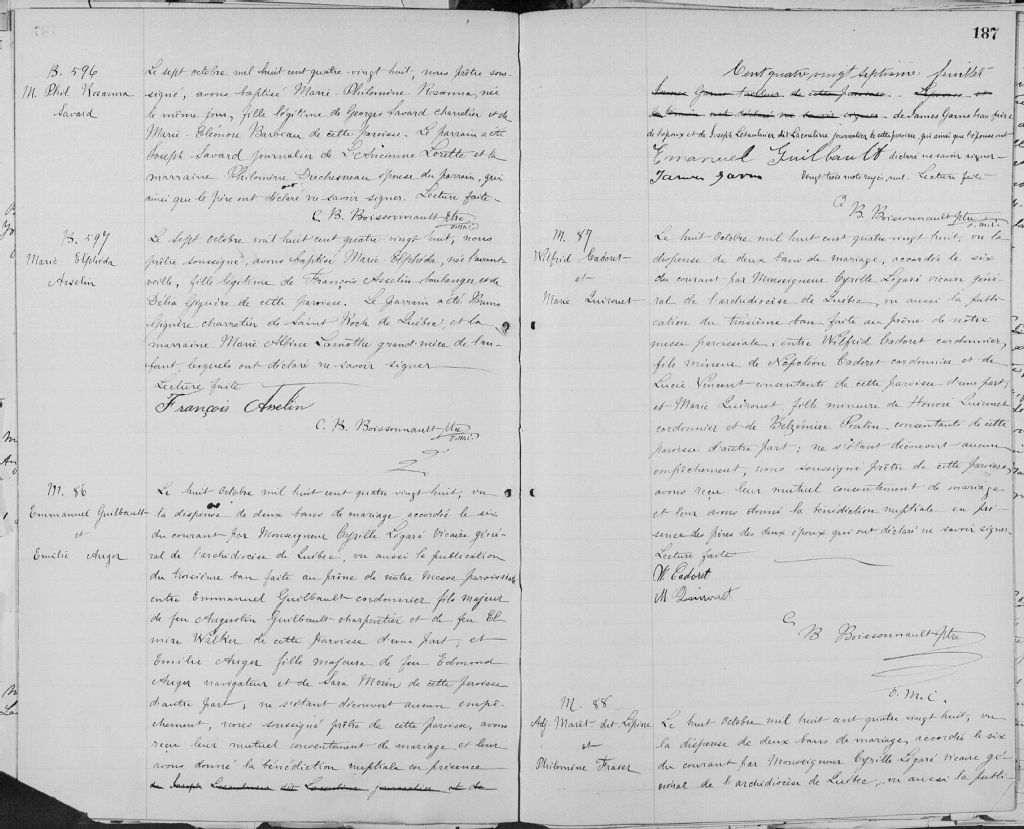 B. 596
M. Phil Rosanna
Savard
Le sept octobre mil huit cent quatre-vingt huit, nous prêtre sous-
signé, avons baptisé Marie-Philomène Rosanna, née
le même jour, fille légitime de Georges Savard charretier et de
Marie-Eléonore Barbeau de cette paroisse. Le parrain a été
Joseph Savard journalier de L'Ancienne Lorette et la
marraine Philomène Duchesneau épouse du parrain, qui
ainsi que le père ont déclaré ne savoir signer. Lecture faite-
C. B. Boissonnault ptre
o.m.i.
B. 597
Marie Elphéda
Asselin
Le sept octobre mil huit cent quatre vingt huit, nous
prêtre soussigné, avons baptisé Marie Elphéda, née l'avant-
veille, fille légitime de François Asselin boulanger et de
Délia Giguère de cette paroisse. Le parrain a été
Giguère charretier de Saint Roch de Québec, et la
marraine Marie Albine Lamotte grand'mère de l'en-
fant, lesquels ont déclaré ne savoir signer
Lecture faite
François Asselin
C. B. Boissonnault ptre
o.m.i.
M. 86
Emmanuel Guilbault
et
Emilie Auger
Le huit Octobre mil huit cent quatre vingt huit, vu
la dispense de deux bans de mariage accordée le six
du courant par Monseigneur Cyrille Légaré Vicaire géné-
ral de l'archidiocèse de Québec, vu aussi la publication
du troisième ban faite au prône de notre Messe paroissiale
entre Emmanuel Guilbault cordonnier fils majeur
de feu Augustin Guilbault charpentier et de feu El-
mire Walker de cette Paroisse d'une part; et
Emilie Auger fille majeure de feu Edmond
Auger navigateur et de Sara Morin de cette paroisse
d'autre part; ne s'étant découvert aucun empê-
chement, nous soussigné prêtre de cette paroisse, avons
reçu leur mutuel consentement de mariage et leur
avons donné la bénédiction nuptiale en présence
de Joseph et de
187
Cent quatre vingt septième feuillet
James de cette paroisse. et
ne savoir signer - de James Garneau père
de l'époux et de Joseph Lesaulnier dit Lacouline journalier de cette paroisse qui ainsi que l'épouse ont
Emanuel Guilbault déclaré ne savoir signer
James Vingt-trois mots rayés, nul. Lecture faite
C. B. Boissonnault ptre
o.m.i.
M. 87
Wilfrid Cadoret
et
Marie Quirouet
Le huit Octobre mil huit cent quatre vingt huit, vu la
dispense de deux bans de mariage, accordée le six
du courant par Monseigneur Cyrille Légaré vicaire géné-
ral de l'archidiocèse de Québec, vu aussi la publi-
cation du troisième ban faite au prône de notre
messe paroissiale; entre Wilfrid Cadoret cordonnier,
fils mineur de Napoléon Cadoret cordonnier et de
Lucie Vincent consentants de cette paroisse d'une part;
et Marie Quirouet fille mineure de Honoré Quirouet
cordonnier et de Belzémire Poulin consentants de cette
paroisse d'autre part; ne s'étant découvert aucun
empêchement, nous soussigné prêtre de cette paroisse,
avons reçu leur mutuel consentement de mariage
et leur avons donné la bénédiction nuptiale en pré-
sence des pères des deux époux qui ont déclaré ne savoir signer.
Lecture faite
W. Cadoret
M Quirouet
C B Boissonnault ptre
o.m.i.
M. 88
Adj. Marett dit Lépine
et
Philomène Fraser
Le huit Octobre mil huit cent quatre vingt huit, vu
la dispense de deux bans de mariage, accordée le six
du courant par Monseigneur Cyrille Légaré vicaire gé-
néral de l'archidiocèse de Québec, vu aussi la publi-